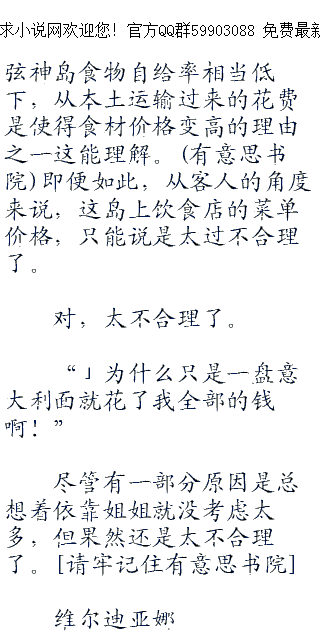 求小说网欢迎您！官方QQ群59903088 免费最新
弦神岛食物自给率相当低
下，从本土运输过来的花费
是使得食材价格变高的理由
之一这能理解。(有意思书
院)即便如此，从客人的角度
来说，这岛上饮食店的菜单
价格，只能说是太过不合理
了。
对，太不合理了。
“」为什么只是一盘意
大利面就花了我全部的钱
啊！”
尽管有一部分原因是总
想着依靠姐姐就没考虑太
多，但果然还是太不合理
了。[请牢记住有意思书院]
维尔迪亚娜